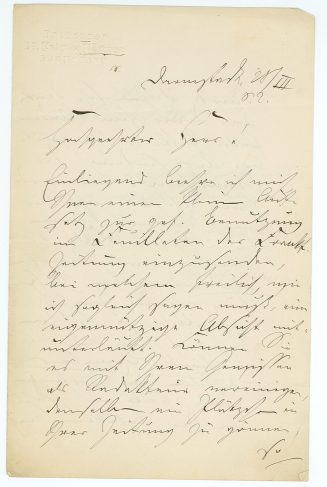 Darmstadt 28/III
82.
Hochgeehrter Herr!
Einliegend beehre ich mich
Ihnen einen klein. Auf-
satz zur gef. Benutzung
im Feuilleton der Frankf.
Zeitung einzusenden,
bei welchem freilich, wie
ich sogleich sagen muß, eine
eigennützige Absicht mit
unterläuft. Können Sie
es mit Ihrem Gewissen
als Redakteur vereinigen,
demselben ein Plätzch. in
Ihrer Zeitung zu gönnen,
so